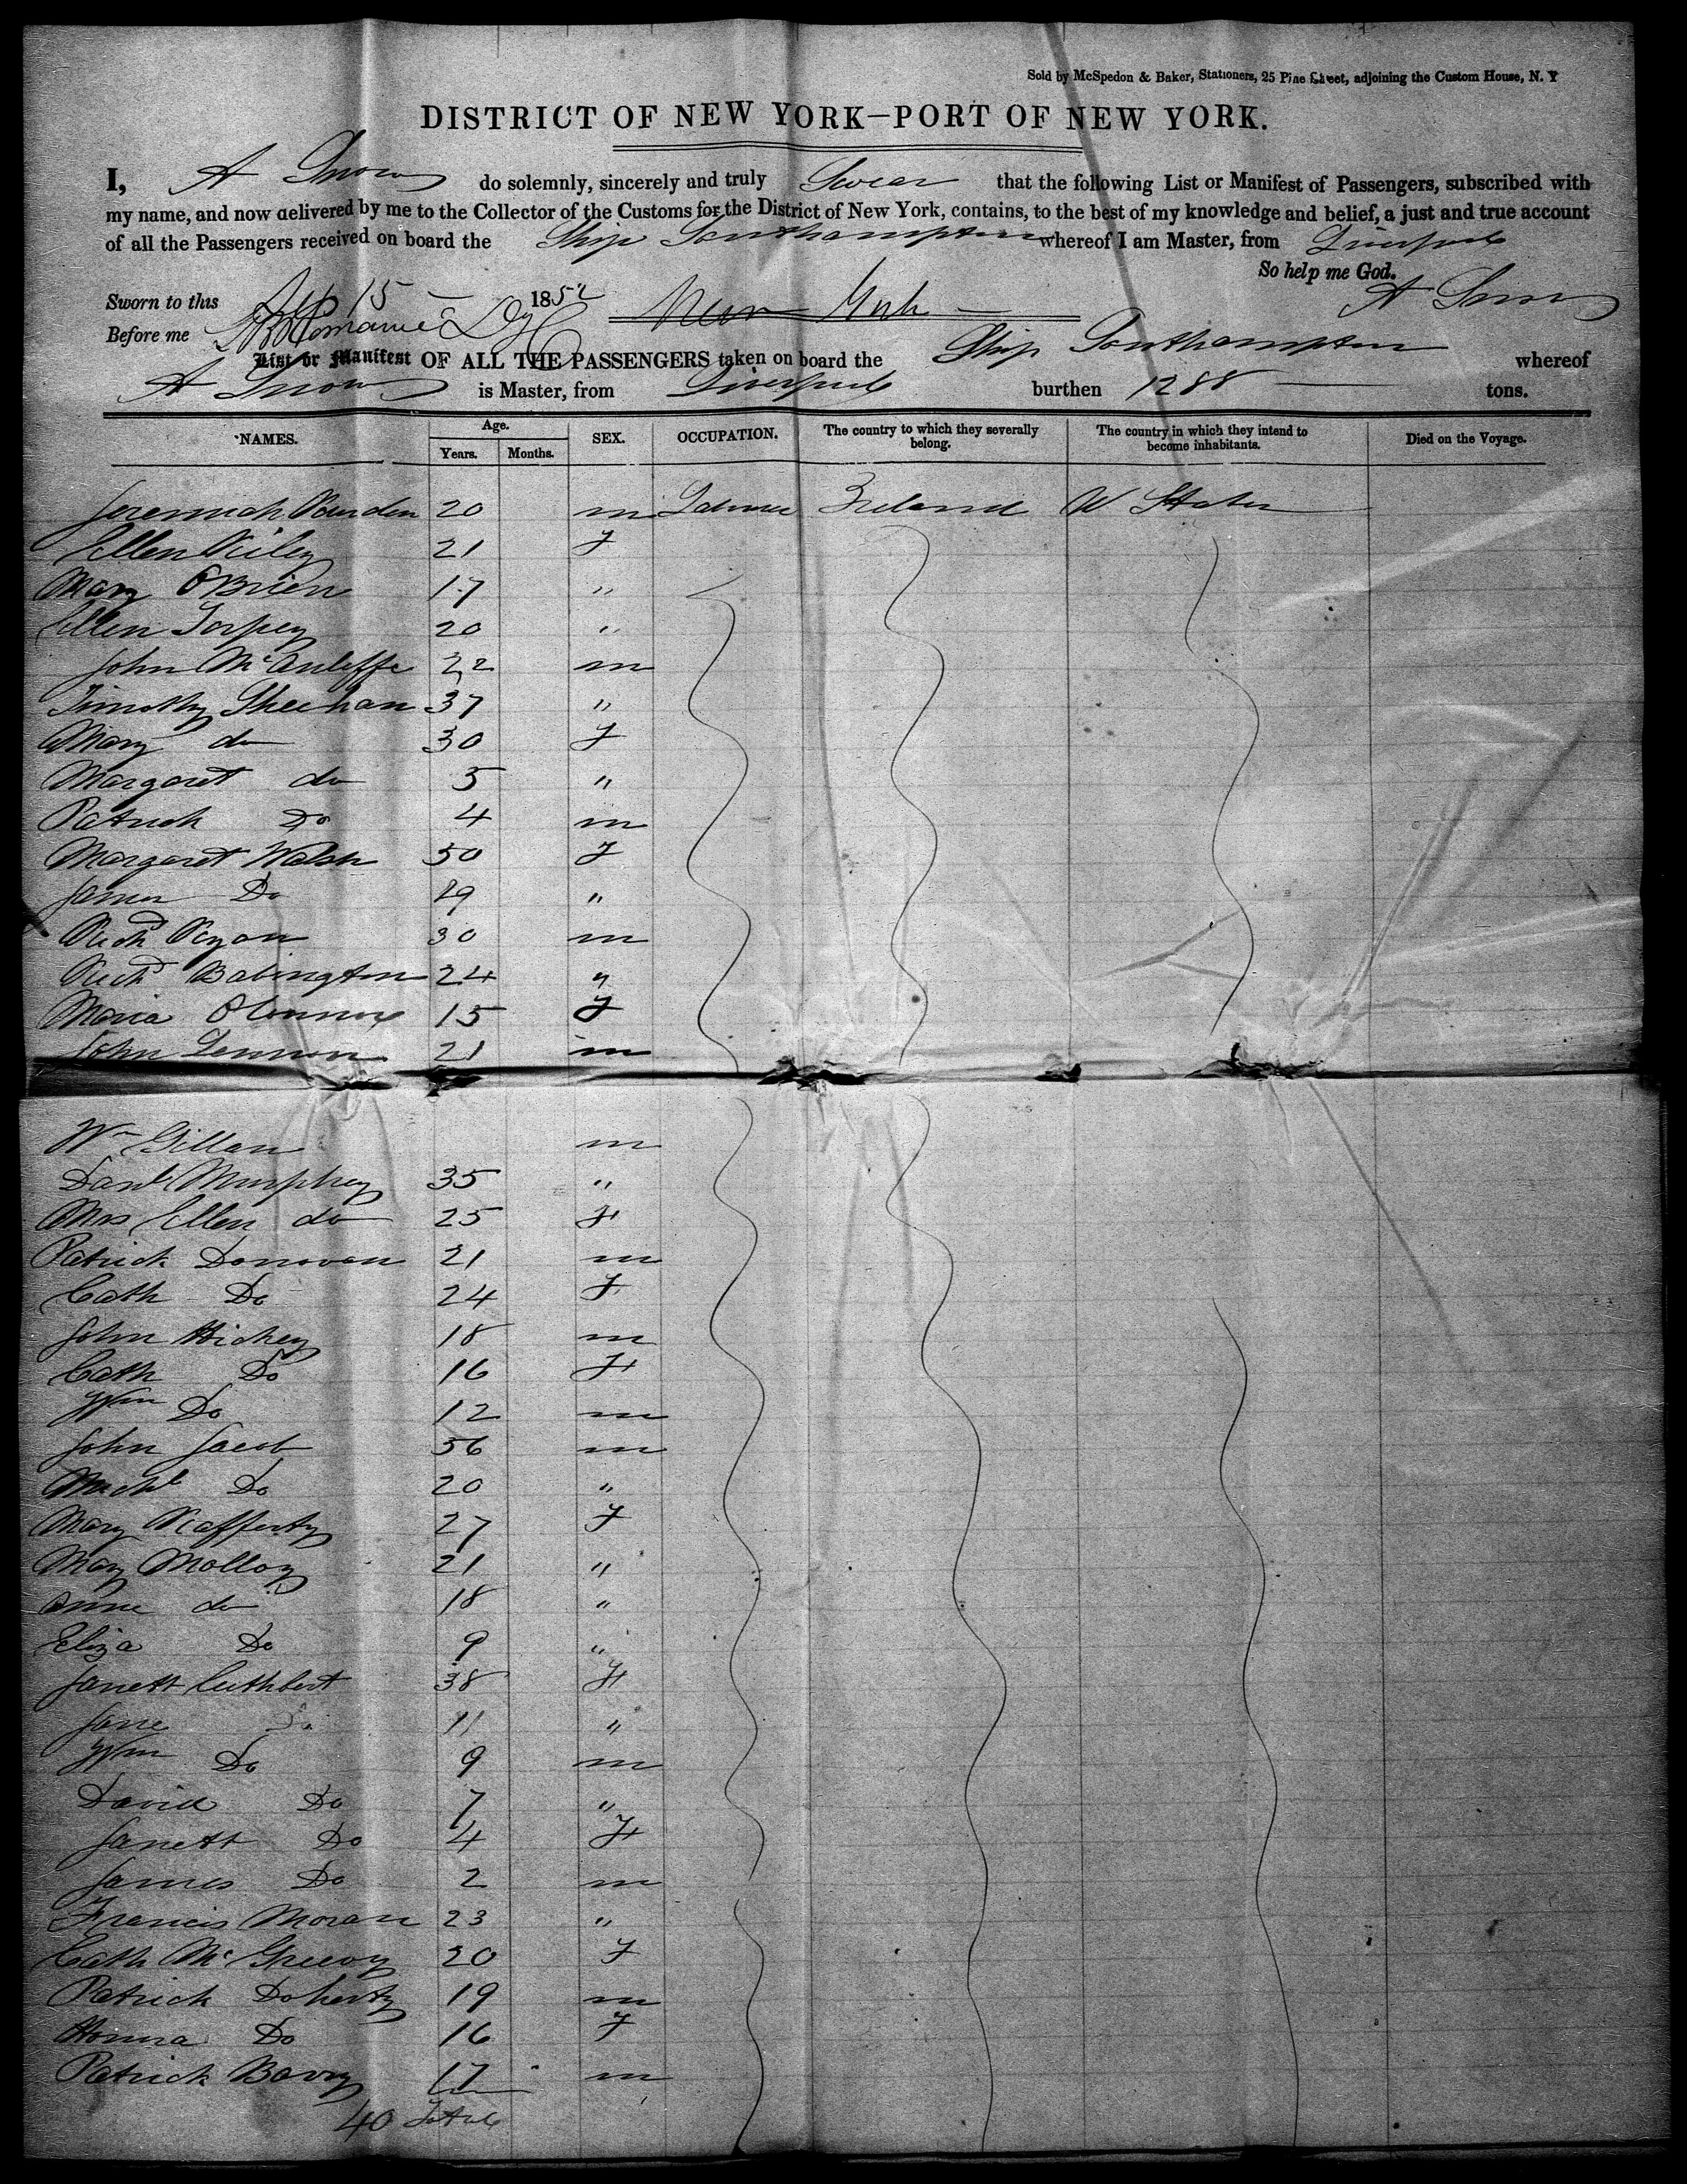 Sold by McSpedon & Baker, Stationers, 25 Pine Street, adjoining the Custom House, N. Y
DISTRICT OF NEW YORK—PORT OF NEW YORK.
I, A Snow do solemnly, sincerely and truly Swear that the following List or Manifest of Passengers, subscribed with
my name, and now delivered by me to the Collector of the Customs for the District of New York, contains, to the best of my knowledge and belief, a just and true account
of all the Passengers received on board the Ship Southampton whereof I am Master, from Liverpool
So help me God.
Sworn to this 15 185 New York A Snow
Before me
List or Manifest OF ALL THE PASSENGERS taken on board the Ship Southampton whereof
A Snow is Master, from Liverpool burthen 1288 tons.
NAMES. Age. Years. Months. SEX. OCCUPATION. The country to which they severally belong. The country in which they intend to become inhabitants. Died on the Voyage.
Jeremiah 20 m Labourer Ireland U States
Ellen Riley 21 F
Mary O'Brien 17 "
Ellen Torpey 20 "
John McAuliffe 22 m
Timothy Sheehan 37 "
Mary do 30 F
Margaret do 5 "
Patrick Do 4 m
Margaret Walsh 50 F
James Do 19 "
Richd Ryan 30 m
Richd Babington 24 "
Maria OConnor 15 F
John Lennon 21 m
Wm Gillan m
Danl Murphey 35 "
Mrs Ellen do 25 F
Patrick Donovan 21 m
Cath Do 24 F
John Hickey 18 m
Cath Do 16 F
Wm Do 12 m
John Jacob 56 m
Michl Do 20 "
Mary Rafferty 27 F
Mary Molloy 21 "
Anne do 18 "
Eliza Do 9 "
Janett Cuthbert 38 F
Jane Do 11 "
Wm Do 9 m
David Do 7 "
Janett Do 4 F
James Do 2 m
Francis Moran 23 "
Cath McGreevy 20 F
Patrick Doherty 19 m
Honora Do 16 F
Patrick Barry 17 m
40 Total